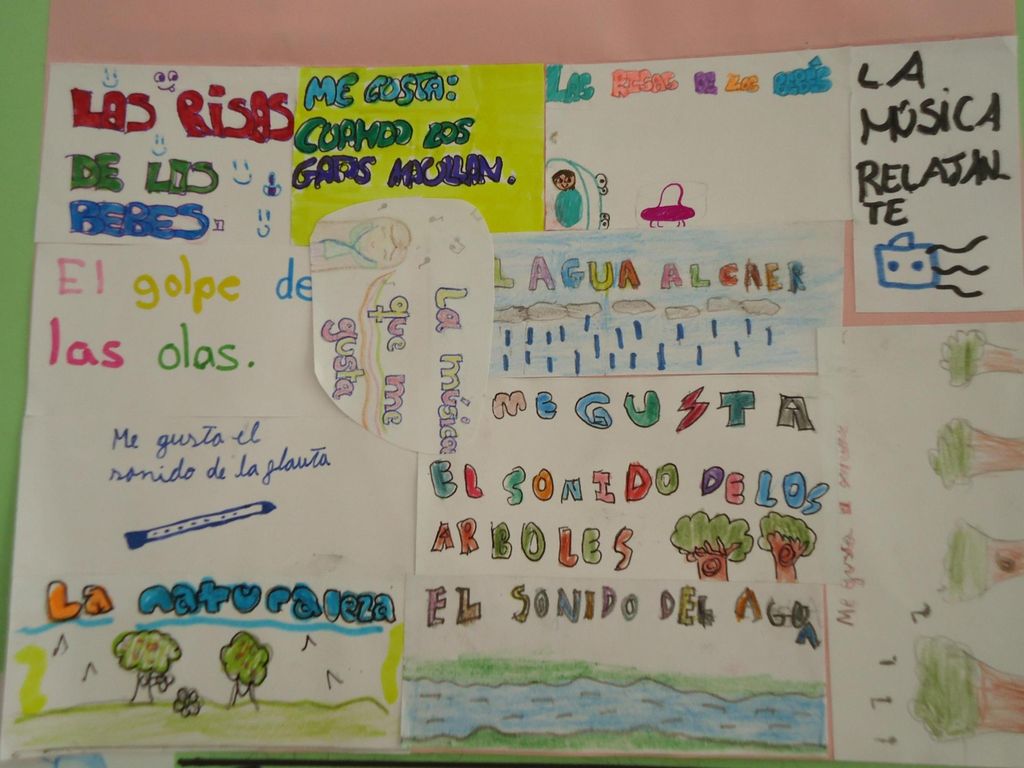 LAS RISAS
DE LOS
BEBES.
ME GUSTA:
CUANDO LOS
GATOS MAULLAN.
LAS RISAS DE LOS BEBÉS
LA
MÚSICA
RELAJAN
TE
El golpe de
las olas.
La música
que me
gusta
L AGUA AL CAER
Me gusta el
sonido de la flauta
ME GUSTA
EL SONIDO DE LOS
ARBOLES
La naturaleza
EL SONIDO DEL AGUA
Me gusta el